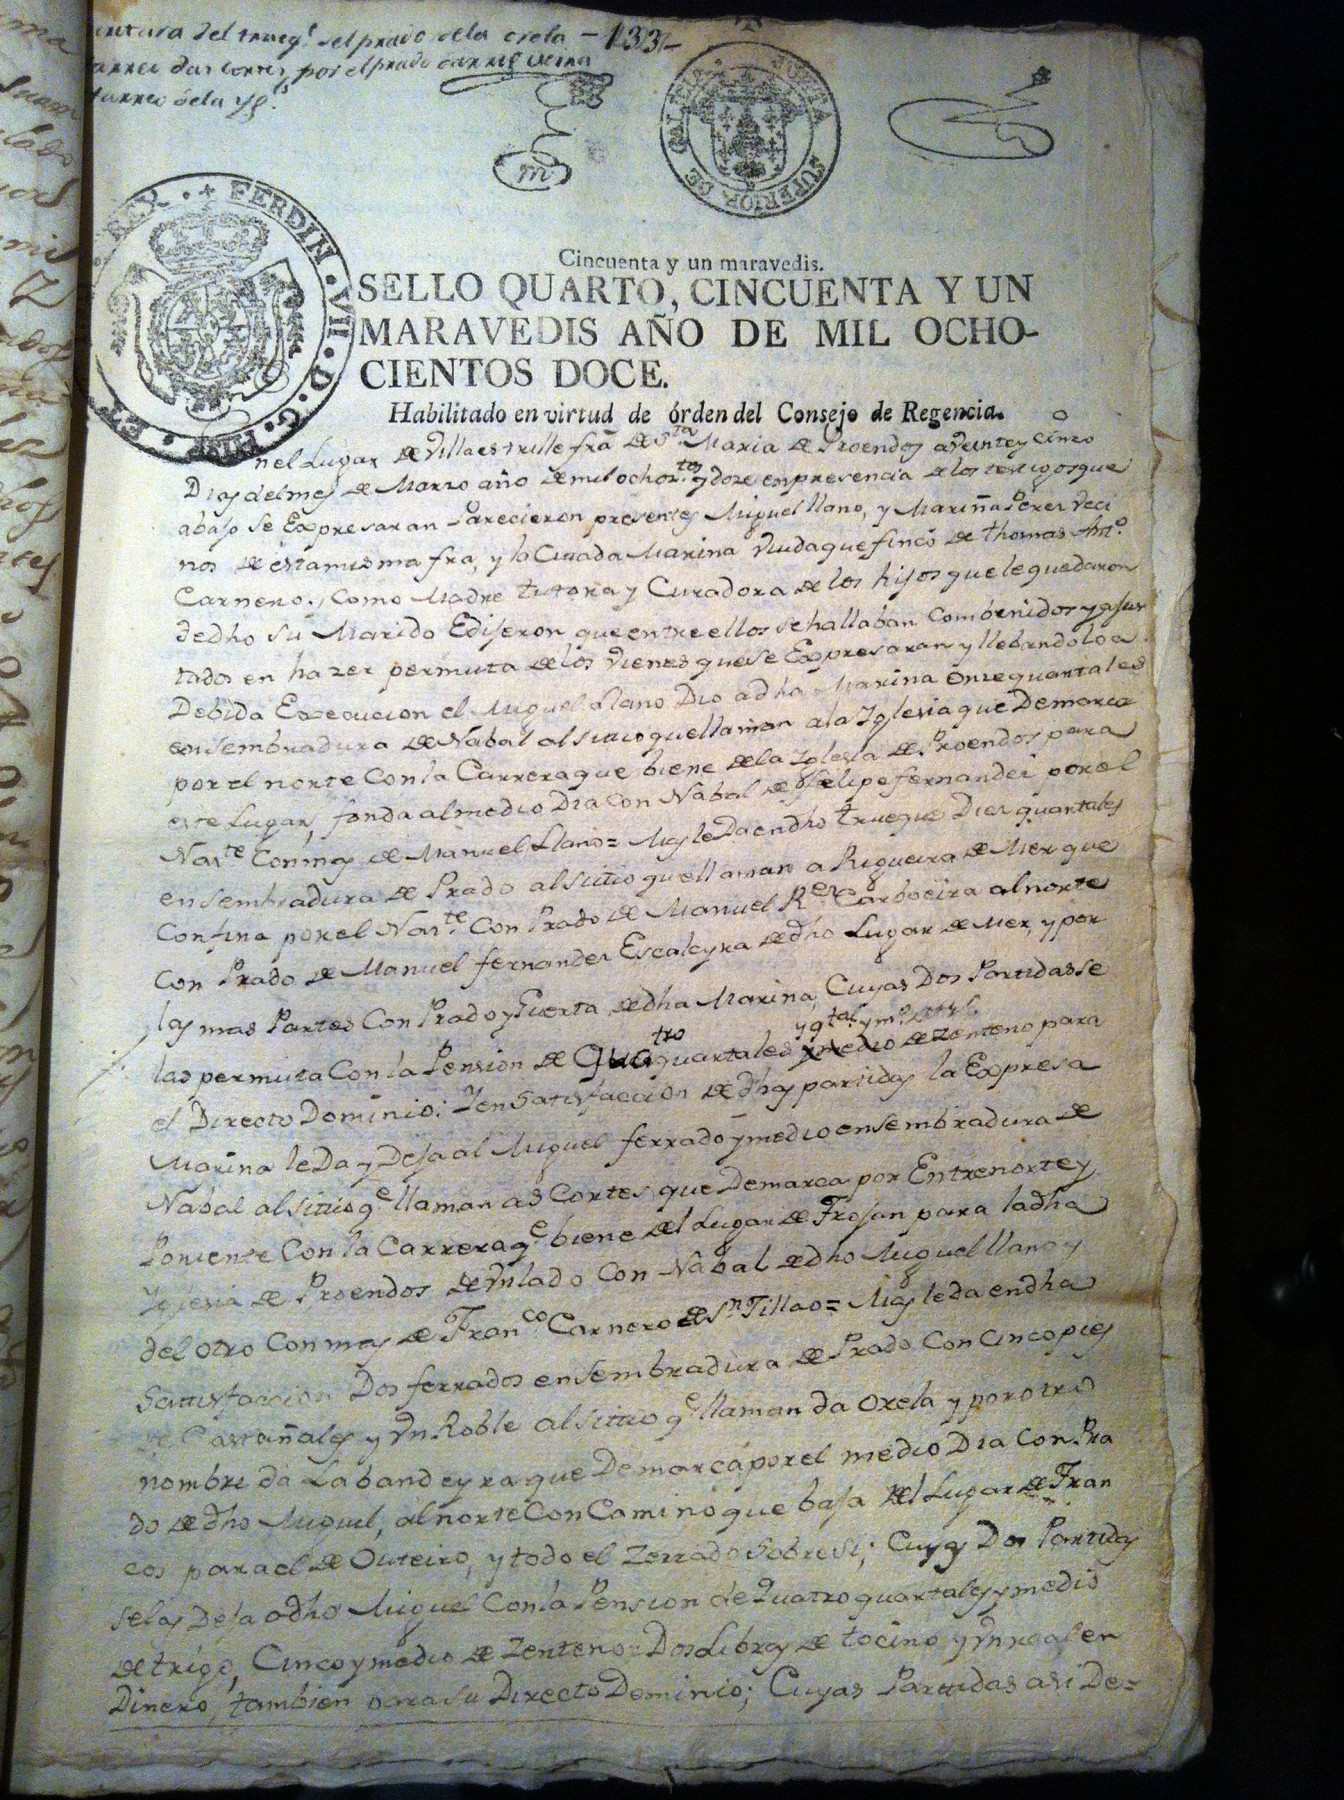 del trueqe. del prado dela orela - 133 -
das Cortes, por el prado
dela ygl.
JUNTA SUPERIOR DE GALICIA
FERDIN. VII. D. G. HISP. ET
REX.
Cincuenta y un maravedis.
SELLO QUARTO, CINCUENTA Y UN
MARAVEDIS AÑO DE MIL OCHO-
CIENTOS DOCE.
Habilitado en virtud de órden del Consejo de Regencia.
nel Lugar de Villaestrille fra de Sta Maria de Proendos a veinte y Cinco
Dias del mes de Marzo año de mil ochoz.tos y doze en presencia de los testigos que
abajo se Expresaran Parecieron presentes Miguel llano, y Mariña Perez veci
nos de esta misma fra, y la Citada Marina Viuda que fincó de thomas Ant.o
Carnero, Como Madre tutora y Curadora de los hijos que le quedaron
de dho su Marido Edijeron que entre ellos se hallaban Combenidos y ajus
tados en hazer permuta de los vienes que se Expresaran y llebandolo a
Debida Execucion el Miguel Llano Dio a dha Marina Onze quartales
en sembradura de Nabal al sitio que llaman a la Iglesia que Demarca
por el norte Con la Carrera que biene de la Iglesia de Proendos para
este Lugar, fonda al medio Dia con Nabal de Felipe fernandez por el
Nas.te Con mas de Manuel Llano = Mas le Da en dho trueque Diez quartales
en sembradura de Prado al sitio que llaman a Rigueira de Mer que
Confina por el Nas.te Con Prado de Manuel R.ez Carboeira al norte
Con Prado de Manuel fernandez Escaleyra de dho Lugar de Mer, y por
las mas Partes Con Prado y Guerta de dha Marina, Cuyas Dos Partidas se
las permuta Con la Pension de Quatro quartales y medio de zenteno para
el Directo Dominio; Y en Satisfaccion de dhas partidas la Expresa
Marina le Da y Deja al Miguel ferrado y medio en sembradura de
Nabal al sitio q.e llaman as Cortes que Demarca por Entre norte y
Poniente Con la Carrera q.e biene del Lugar de Frojan para la dha
Yglesia de Proendos de Un lado Con Nabal de dho Miguel llano y
del otro Con mas de Fran.co Carnero de S.n Tillao = Mas le da en dha
Satisfaccion Dos ferrados en sembradura de Prado Con Cinco pies
de Castañales y Un Roble al sitio q.e llaman da Orela y por otro
nombre da Labandeyra que Demarca por el medio Dia Con Pra
do de dho Miguel, al norte Con Camino que baja del Lugar de Fran
cos para el de Outeiro, y todo el Zerrado sobre si; Cuyas Dos Partidas
se las Deja a dho Miguel Con la Pension de Quatro quartales y medio
de trigo, Cinco y medio de Zenteno Dos Libras de tocino y Un real en
Dinero, tambien para su Directo Dominio; Cuyas Partidas asi De=